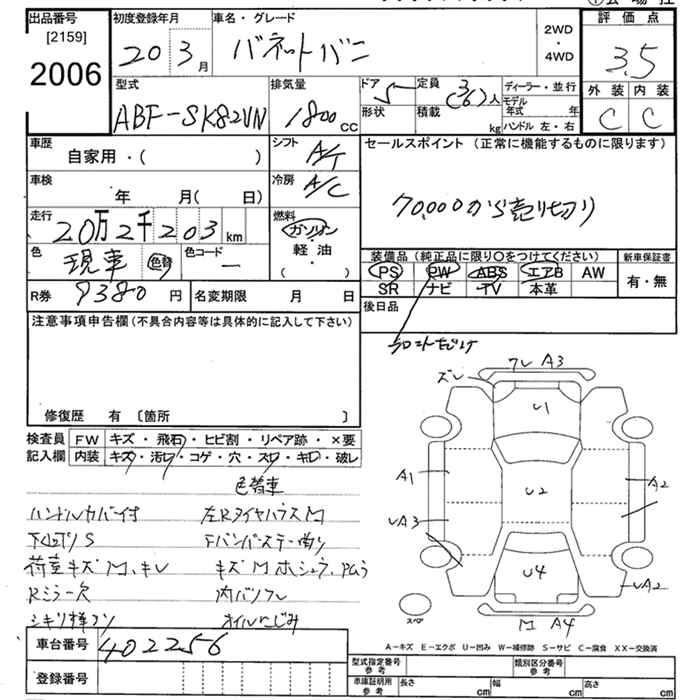 出品番号
[2159]
2006
初度登録年月
20 3月
車名・グレード
バネットバン
2WD
・
4WD
評価点
3.5
外装 内装
C C
型式
ABF-SK82VN
排気量
1800cc
ドア
5
形状
定員
3(6)人
積載
kg
ディーラー・並行
モデル年式 年
ハンドル 左・右
車歴
自家用・( )
シフト
A/T
車検
年 月( 日)
冷房
A/C
セールスポイント (正常に機能するものに限ります)
70,000から売り切り
走行
20万2千203km
燃料
ガソリン
・
軽油
( )
色
現車 色替
色コード
ー
装備品(純正品に限り〇をつけてください)
PS PW ABS エアB AW
SR ナビ TV 本革
新車保証書
有・無
R券 9380円
名変期限 月 日
後日品
フロントのみ
注意事項申告欄 (不具合内容等は具体的に記入して下さい)
修復歴 有 〔箇所 〕
検査員記入欄
FW キズ・飛石・ヒビ割・リペア跡・×要
内装 キズ・汚レ・コゲ・穴・スレ・キレ・破レ
色替車
ハンドルカバー付 左RタイヤハウスM
下回りS Fバンパーステー曲り
荷室キズM、キレ
Rミラー欠
オイルにじみ
ズレ
ワレ A3
U1
A1
U2
A2
UA3
U4
UA2
スペア
M A4
A-キズ E-エクボ U-凹み W-補修跡 S-サビ C-腐食 XX-交換済
車台番号 402256
登録番号
型式指定番号 参考
類別区分番号 参考
車庫証明用 参考
長さ cm
幅 cm
高さ cm